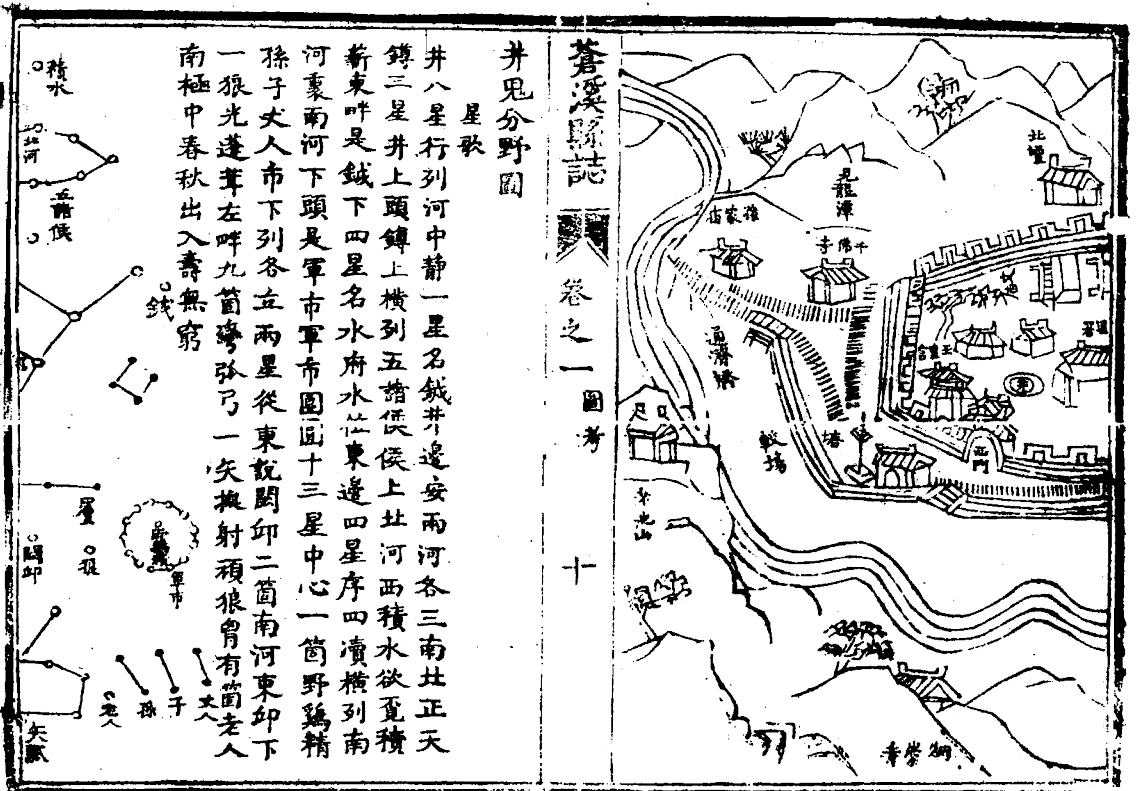 北壇
見龍潭
千佛寺
通濟橋
較場
塔
西門
玉皇宮
蒼溪縣誌
卷之一
圖考
十
井鬼分野圖
星歌
井八星行列河中靜一星名鉞井邊安兩河各三南北正天
鐏三星井上頭鐏上橫列五諸侯侯上北河西積水欲覓積
薪東畔是鉞下四星名水府水位東邊四星序四瀆橫列南
河裏南河下頭是軍市軍市團圓十三星中心一箇野鷄精
孫子丈人市下列各立兩星從東說闕邱二箇南河東邱下
一狼光蓬茸左畔九箇彎弧弓一矢擬射頑狼胷有箇老人
南極中春秋出入壽無窮
積水
北河
五諸侯
鉞
狼
闕邱
軍市
丈人
子
孫
老人